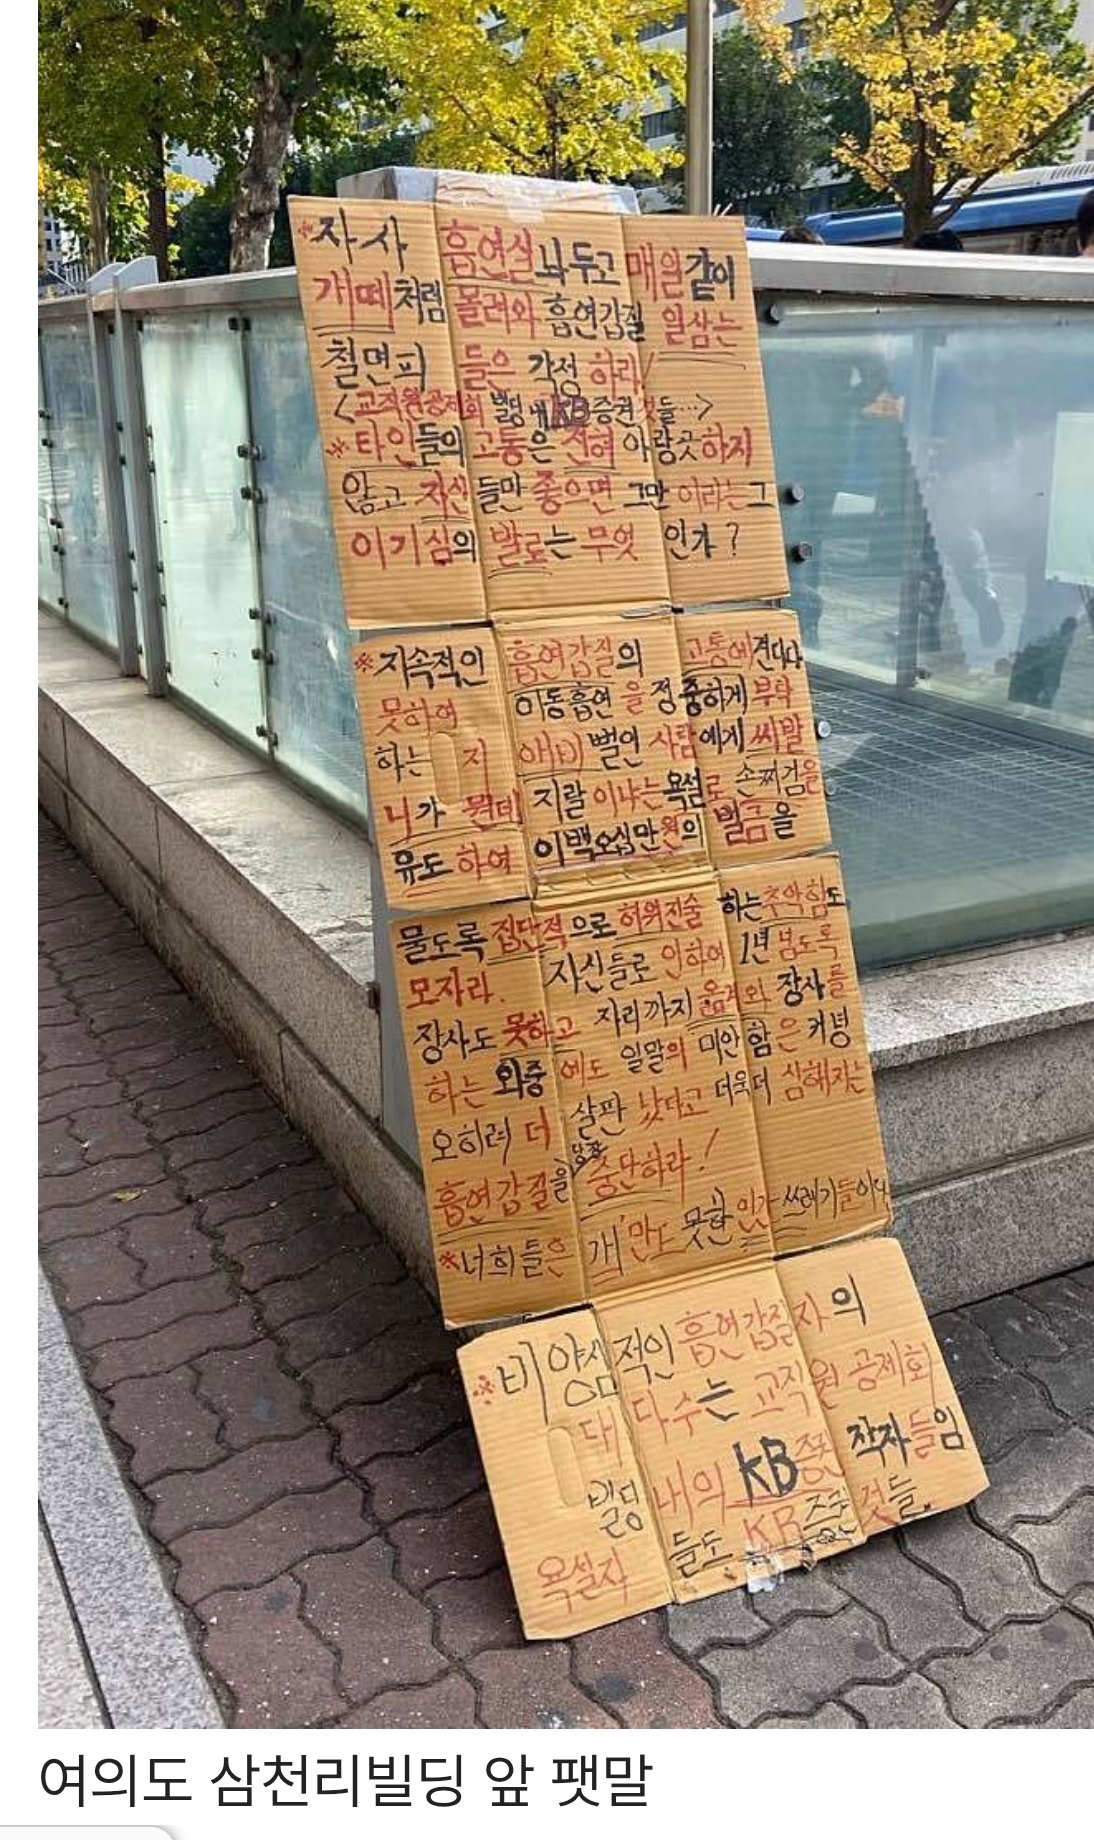 *자사 흡연실 놔두고 매일같이
개떼처럼 몰려와 흡연갑질 일삼는
철면피들은 각성하라!
<교직원공제회 빌딩 내 KB증권 것들…>
*타인들의 고통은 전혀 아랑곳하지
않고 자신들만 좋으면 그만이라는 그
이기심의 발로는 무엇인가?
*지속적인 흡연갑질의 고통에 견디다
못하여 이동흡연을 정중하게 부탁
하는 지 애비 뻘인 사람에게 씨발
니가 뭔데 지랄이냐는 욕설로 손찌검을
유도하여 이백오십만원의 벌금을
물도록 집단적으로 허위진술하는 추악함도
모자라. 자신들로 인하여 1년 넘도록
장사도 못하고 자리까지 옮겨와 장사를
하는 와중에도 일말의 미안함은 커녕
오히려 더 살판 났다고 더욱더 심해지는
흡연갑질을 당장 중단하라!
*너희들은 개만도 못한 인간 쓰레기들이다
*비양심적인 흡연갑질자의
대다수는 교직원공제회
빌딩내의 KB증권 작자들임
욕설자들도 KB증권 것들.
여의도 삼천리빌딩 앞 팻말